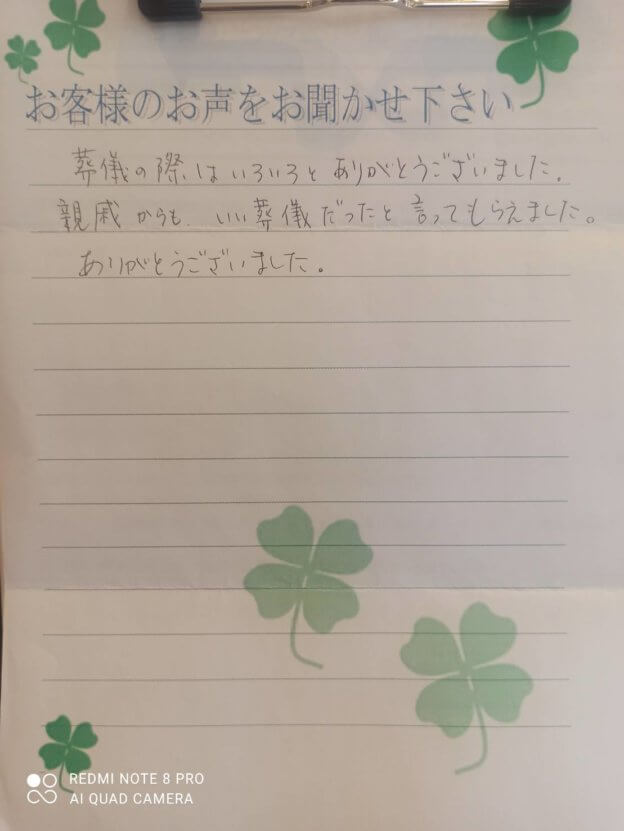 お客様のお声をお聞かせ下さい
葬儀の際はいろいろとありがとうございました。
親戚からも、いい葬儀だったと言ってもらえました。
ありがとうございました。
REDMI NOTE 8 PRO
AI QUAD CAMERA